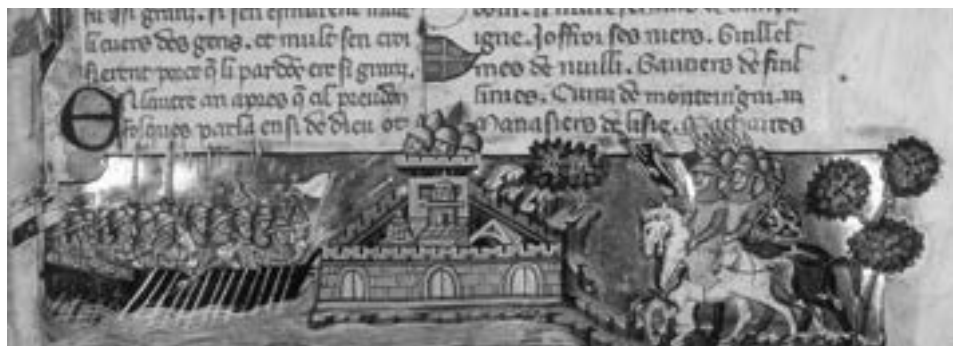 fu issi granz. si sen esmurent mult
li cuers des gens. et mult sen croi
sierent porce q̃ li pardõs ere si granz.
En lautre an apres q̃ cil preudom
folques parla ensi de dieu ot
igne. Joffroi ses niers. Guillel
mes de nuilli. Gautiers de
de monteingni.
Manasiers de lisle. Machaires